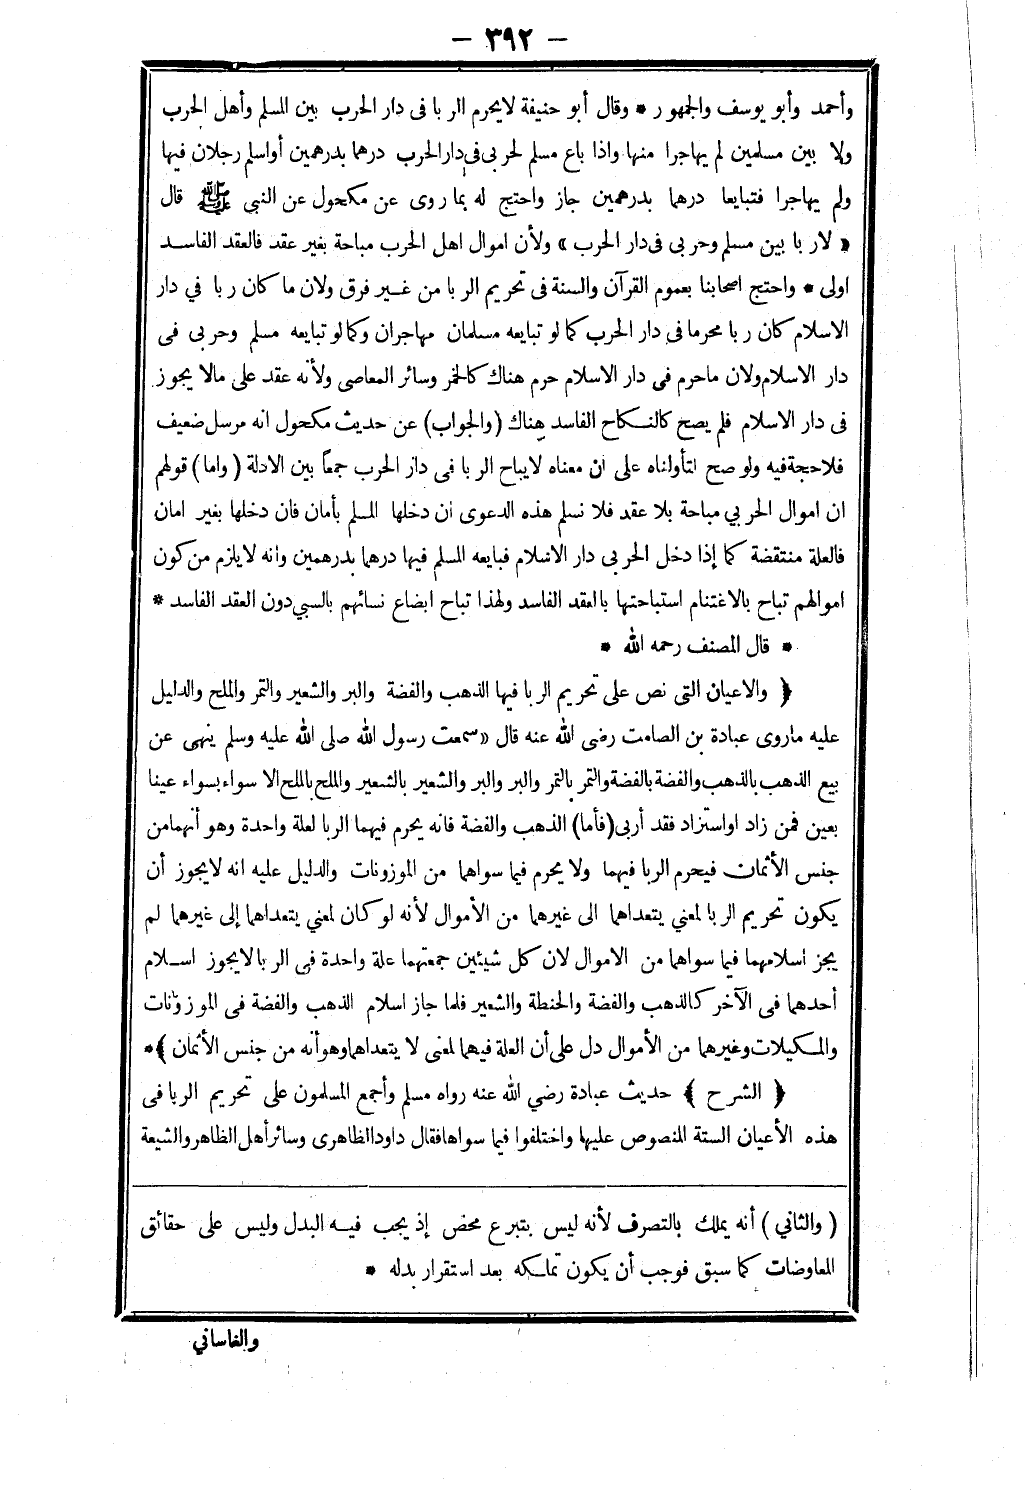 — ٣٩٢ —
وأحمد وأبو يوسف والجمهور * وقال أبو حنيفة لا يحرم الربا فى دار الحرب بين المسلم وأهل الحرب
ولا بين مسلمين لم يهاجرا منها واذا باع مسلم لحربى فى دار الحرب درهما بدرهمين أو اسلم رجلان فيها
ولم يهاجرا فتبايعا درهما بدرهمين جاز واحتج له بما روى عن مكحول عن النبى ﷺ قال
« لا ربا بين مسلم وحربى فى دار الحرب » ولأن اموال اهل الحرب مباحة بغير عقد فالعقد الفاسد
اولى * واحتج اصحابنا بعموم القرآن والسنة فى تحريم الربا من غير فرق ولان ما كان ربا في دار
الاسلام كان ربا محرما فى دار الحرب كما لو تبايعه مسلمان مهاجران وكما لو تبايعه مسلم وحربى فى
دار الاسلام ولان ماحرم فى دار الاسلام حرم هناك كالخمر وسائر المعاصى ولأنه عقد على مالا يجوز
فى دار الاسلام فلم يصح كالنكاح الفاسد هناك (والجواب) عن حديث مكحول انه مرسل ضعيف
فلا حجة فيه ولو صح لتأولناه على ان معناه لا يباح الربا فى دار الحرب جمعاً بين الادلة (واما) قولهم
ان اموال الحربي مباحة بلا عقد فلا نسلم هذه الدعوى ان دخلها المسلم بأمان فان دخلها بغير امان
فالعلة منتقضة كما إذا دخل الحربى دار الاسلام فبايعه المسلم فيها درهما بدرهمين وانه لا يلزم من كون
اموالهم تباح بالاغتنام استباحتها بالعقد الفاسد ولهذا تباح ابضاع نسائهم بالسبي دون العقد الفاسد *
* قال المصنف رحمه الله *
﴿ والاعيان التى نص على تحريم الربا فيها الذهب والفضة والبر والشعير والتمر والملح والدليل
عليه ماروى عبادة بن الصامت رضى الله عنه قال « سمعت رسول الله صلى الله عليه وسلم ينهى عن
بيع الذهب بالذهب والفضة بالفضة والتمر بالتمر والبر والبر والشعير بالشعير والملح بالملح الا سواء بسواء عينا
بعين فمن زاد او استزاد فقد أربى (فأما) الذهب والفضة فانه يحرم فيهما الربا لعلة واحدة وهو أنهما من
جنس الأثمان فيحرم الربا فيهما ولا يحرم فيما سواهما من الموزونات والدليل عليه انه لا يجوز أن
يكون تحريم الربا لمعني يتعداهما الى غيرهما من الأموال لأنه لو كان لمعني يتعداهما إلى غيرهما لم
يجز اسلامهما فيما سواهما من الاموال لان كل شيئين جمعتهما علة واحدة فى الربا لايجوز اسلام
أحدهما فى الآخر كالذهب والفضة والحنطة والشعير فلما جاز اسلام الذهب والفضة فى الموزونات
والمكيلات وغيرهما من الأموال دل على أن العلة فيهما لمعنى لا يتعداهما وهو أنه من جنس الأثمان ﴾ *
﴿ الشرح ﴾ حديث عبادة رضي الله عنه رواه مسلم وأجمع المسلمون على تحريم الربا فى
هذه الأعيان الستة المنصوص عليها واختلفوا فيما سواها فقال داود الظاهرى وسائر أهل الظاهر والشيعة
( والثاني ) أنه يملك بالتصرف لأنه ليس بتبرع محض إذ يجب فيه البدل وليس على حقائق
المعاوضات كما سبق فوجب أن يكون تملكه بعد استقرار بدله *
والغاساني